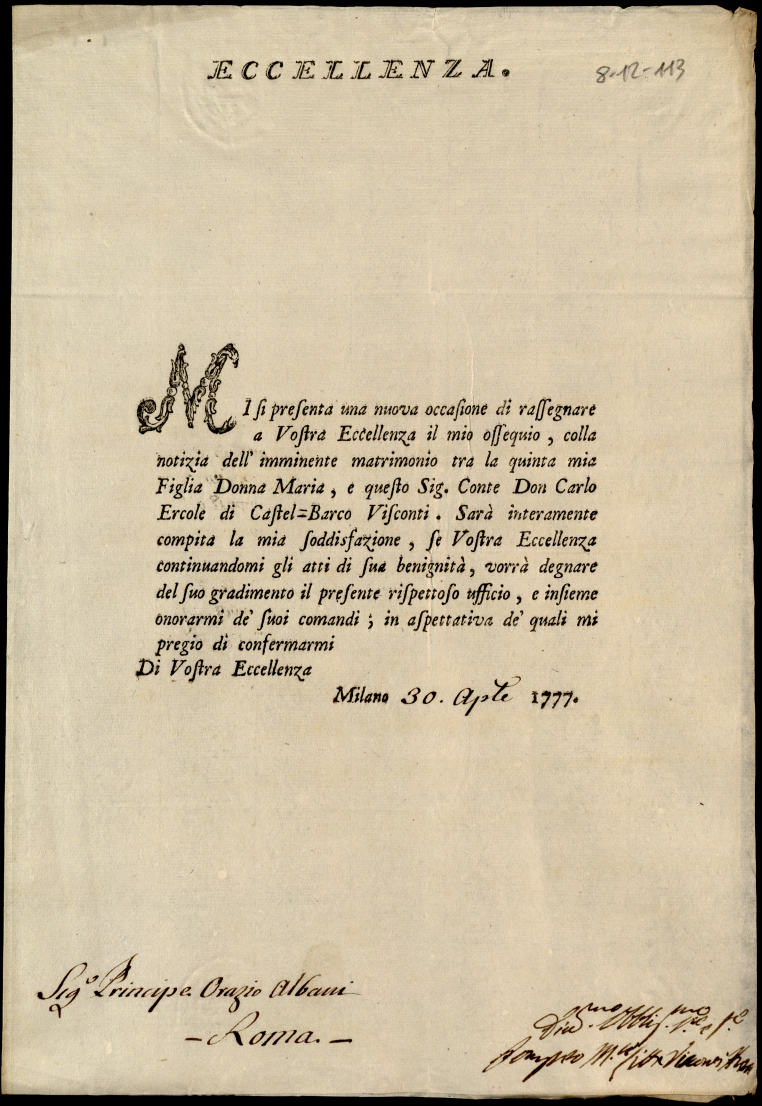 ECCELLENZA.
8-12-113
MI si presenta una nuova occasione di rassegnare
a Vostra Eccellenza il mio ossequio, colla
notizia dell' imminente matrimonio tra la quinta mia
Figlia Donna Maria, e questo Sig. Conte Don Carlo
Ercole di Castel=Barco Visconti. Sarà interamente
compita la mia soddisfazione, se Vostra Eccellenza
continuandomi gli atti di sua benignità, vorrà degnare
del suo gradimento il presente rispettoso ufficio, e insieme
onorarmi de' suoi comandi; in aspettativa de' quali mi
pregio di confermarmi
Di Vostra Eccellenza
Milano 30. Aple 1777.
Sigr Principe Orazio Albani
- Roma. -
Divmo. Obbligmo
Pompeo Litta Visconti